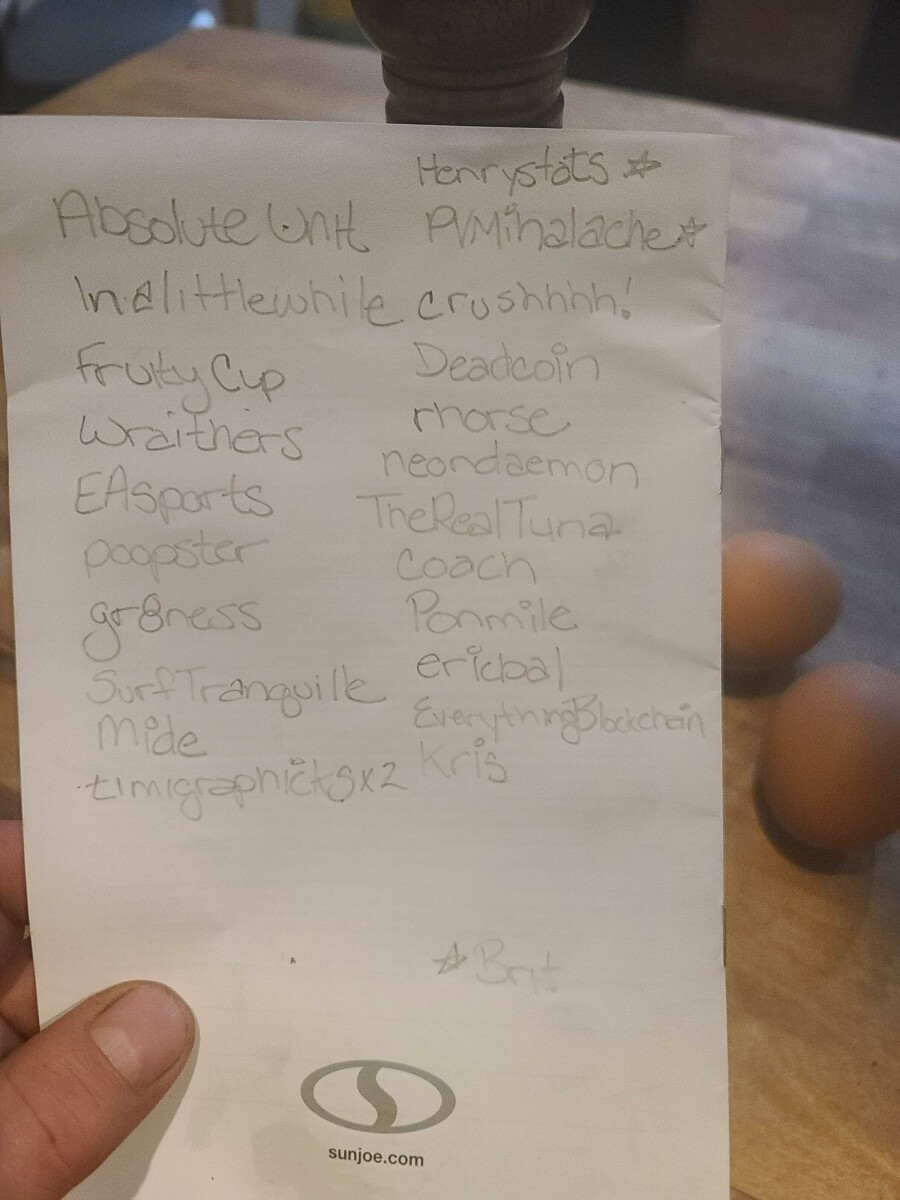 Absolute Unit
Inalittlewhile
Fruity Cup
Wraithers
EAsports
poopster
gr8ness
SurfTranquille
Mide
timigraphicksx2
Henrystats ☆
PVMihalache☆
crushhhh!
Deadcoin
rhorse
neondaemon
TheRealTuna
Coach
Ponmile
ericbal
EverythingBlockchain
Kris
☆Brit
sunjoe.com